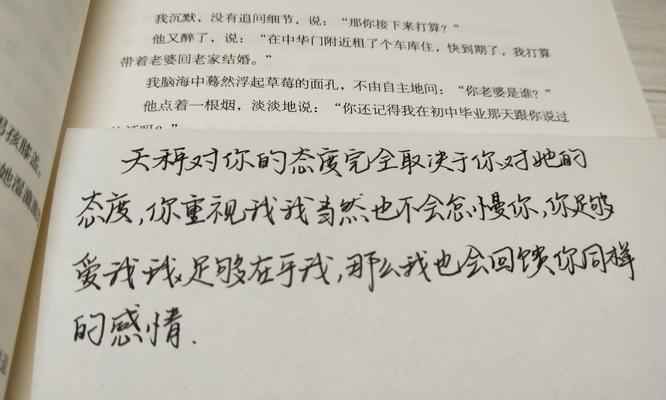 我沉默，没有追问细节，说：“那你接下来打算？”
他又醉了，说：“在中华门附近租了个车库住，快到期了，我打算
带着老婆回老家结婚。”
我脑海中蓦然浮起草莓的面孔，不由自主地问：“你老婆是谁？”
他点着一根烟，淡淡地说：“你还记得我在初中毕业那天跟你说过
天秤对你的态度完全取决于你对她的
态度，你重视我我当然也不会怠慢你，你足够
爱我我足够在乎我，那么我也会回馈你同样
的感情.